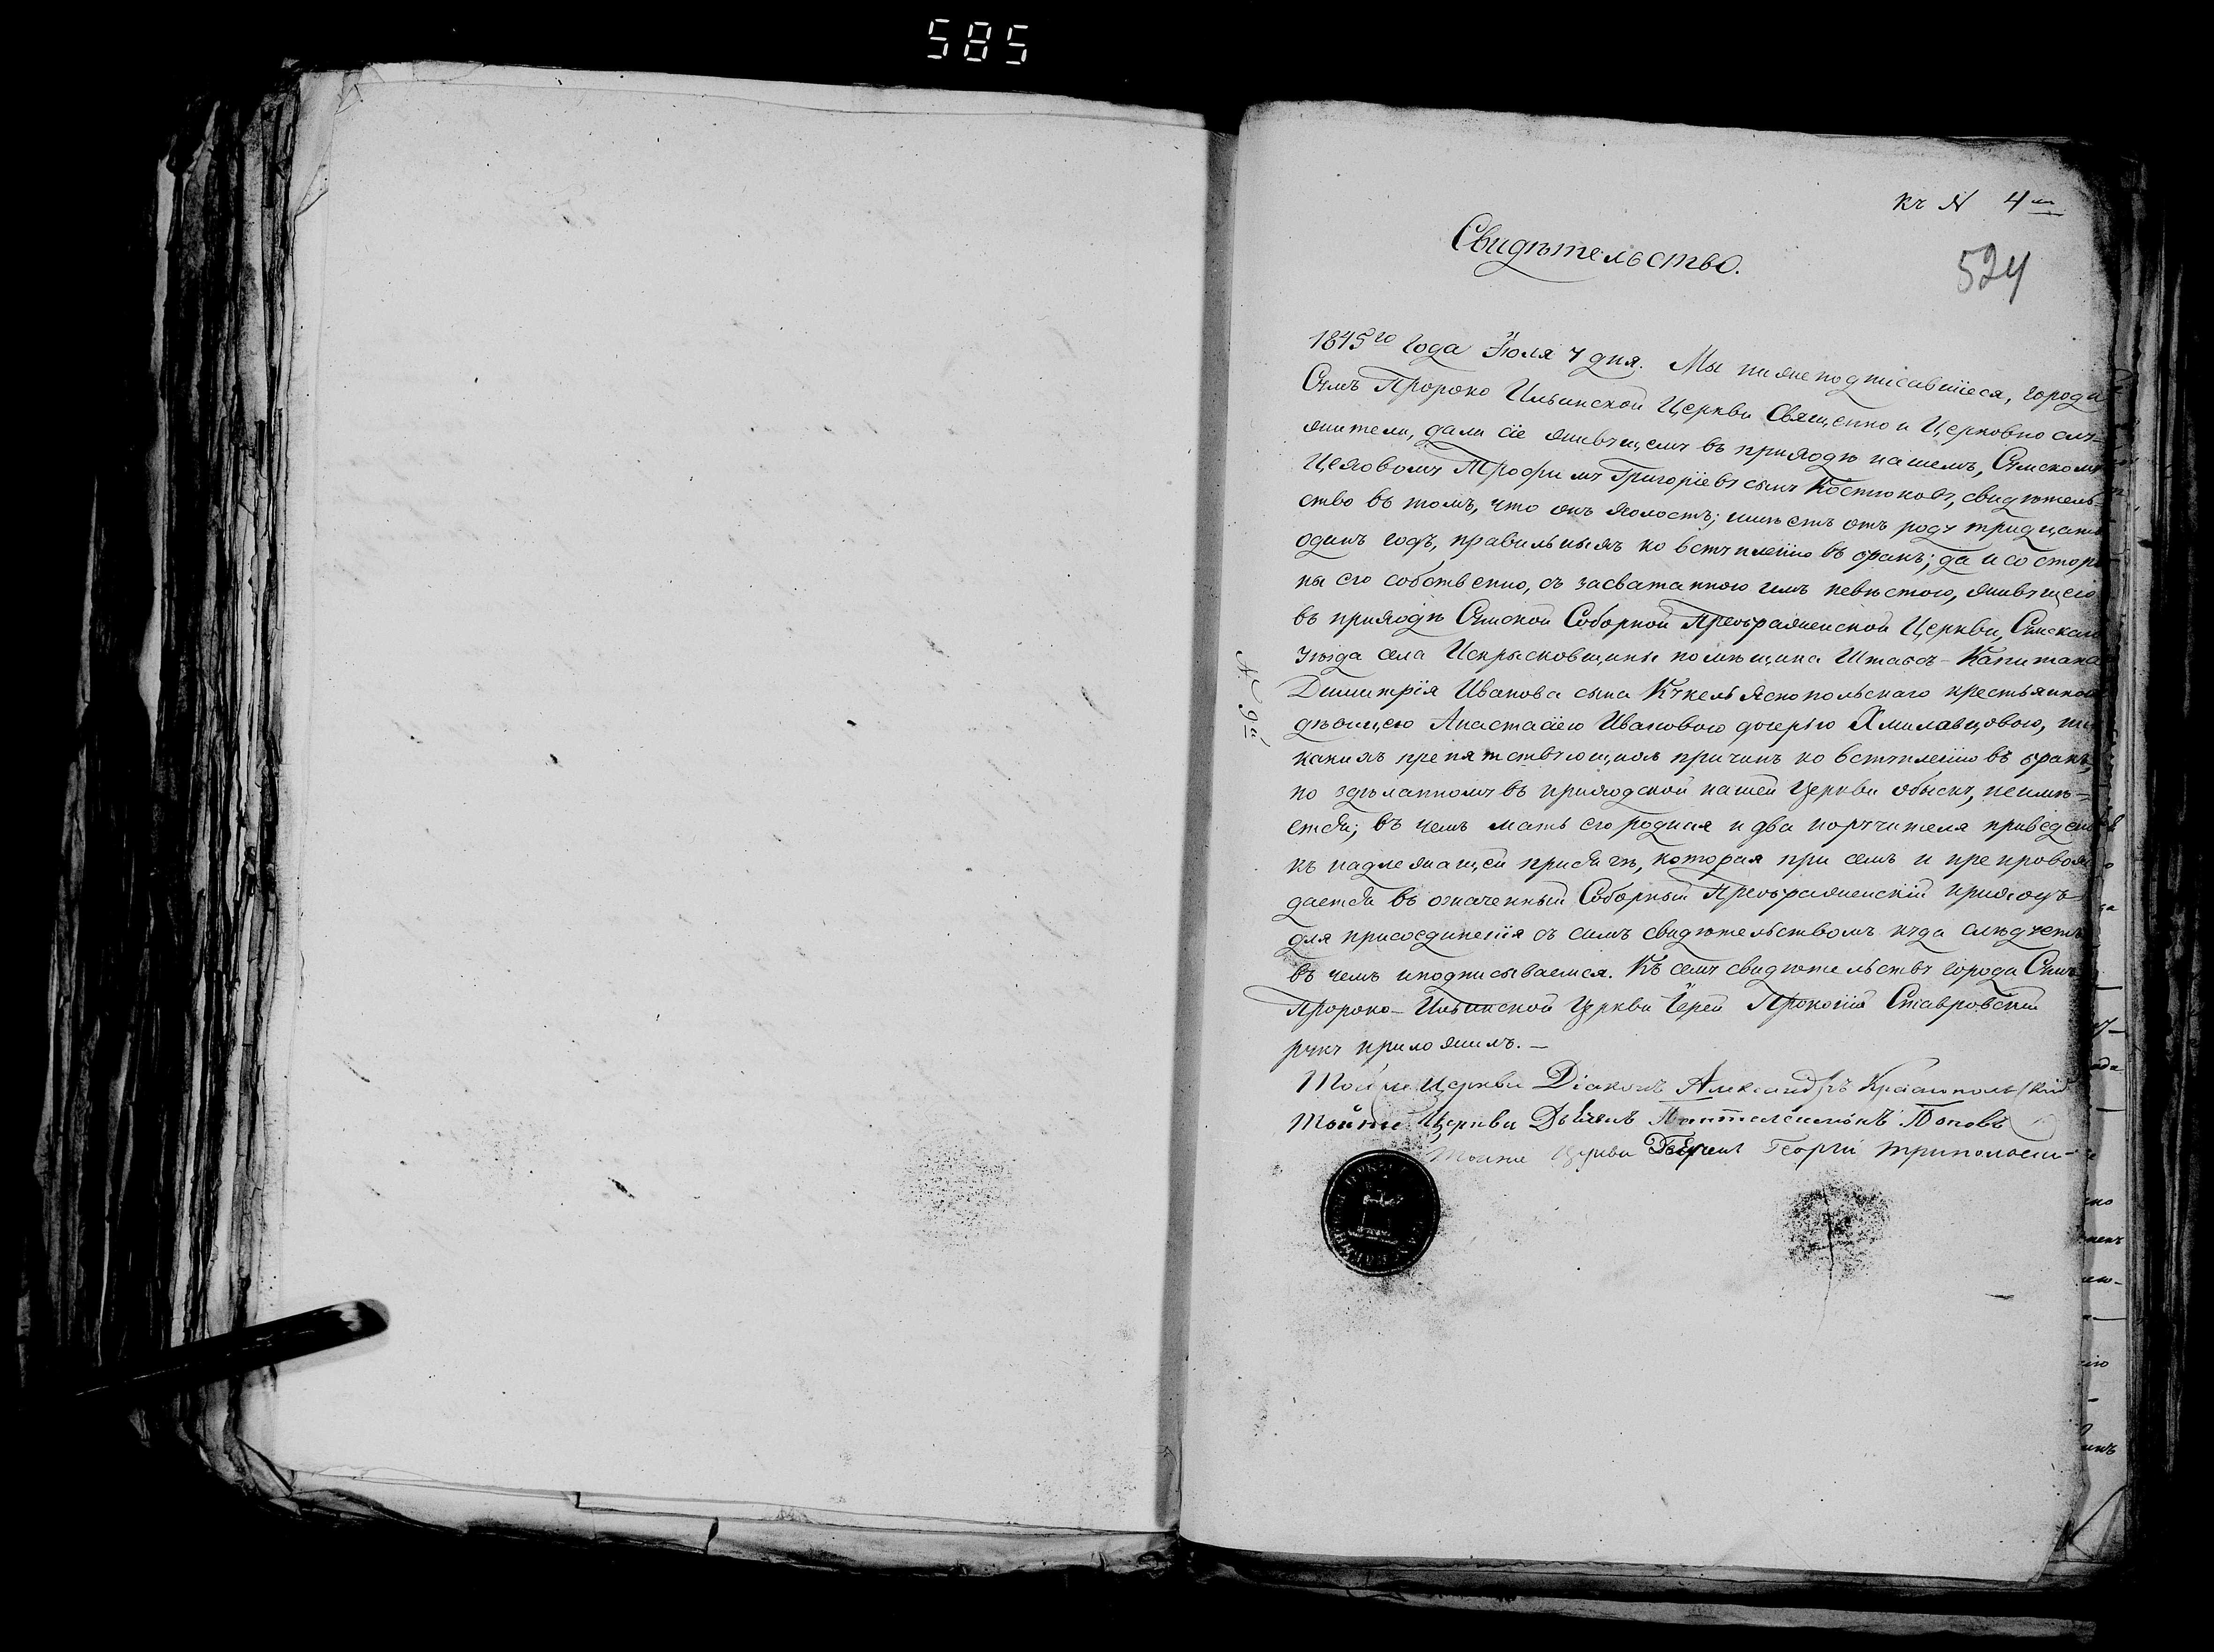 585
къ № 4му
Свидѣтельство.
524
1845го года Іюля 4 дня. Мы нижеподписавшіеся, города
Сумъ Пророко Ильинской Церкви Священно и Церковно слу-
жители, дали сіе живущему въ приходѣ нашемъ, Сумскому
Цеховому Трофиму Григоріеву сыну Костюкову, свидѣтель-
ство въ томъ, что онъ холостъ; имѣетъ отъ роду тридцать
одинъ годъ, правильныхъ ко вступленію въ бракъ; да и со сторо
ны его собственно, съ засватанною имъ невѣстою, живущею
въ приходѣ Сумской Соборной Преображенской Церкви, Сумскаго
уѣзда села Искрысковщины помѣщика Штабсъ-Капитана
Димитрія Иванова сына Кукель Яснопольскаго крестьянкою
дѣвицею Анастасіею Ивановою дочерью Хмилавцовою, ни
какихъ препятствующихъ причинъ ко вступленію въ бракъ,
по здѣланному въ приходской нашей Церкви обыску, неимѣ-
ется; въ чемъ мать его родная и два поручителя приведены
къ надлежащей присягѣ, которая при семъ и препровож
дается въ означенный Соборный Преображенскій приходъ
для присоединенія съ симъ свидѣтельствомъ куда слѣдуетъ
въ чемъ иподписываемся. Къ сему свидѣтельству города Сумъ
Пророко-Ильинской Церкви Іерей Прокопій Ставровскій
руку приложилъ.—
Той же Церкви Діаконъ Александръ Краснопольскій
Тойже Церкви Дьячекъ Пантелеимонъ Поповъ
Тойже Церкви Георгій
№ 9й